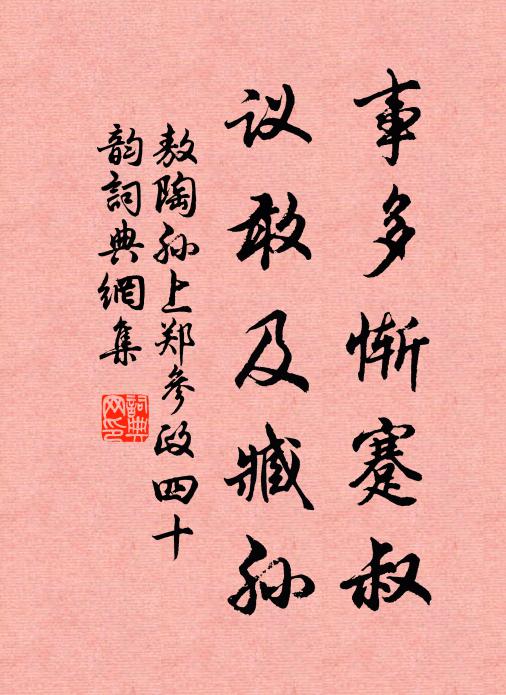 事多惭蹇叔
议敢及臧孙
敖陶孙上郑参政四十
韵詞典網集
詞典网印